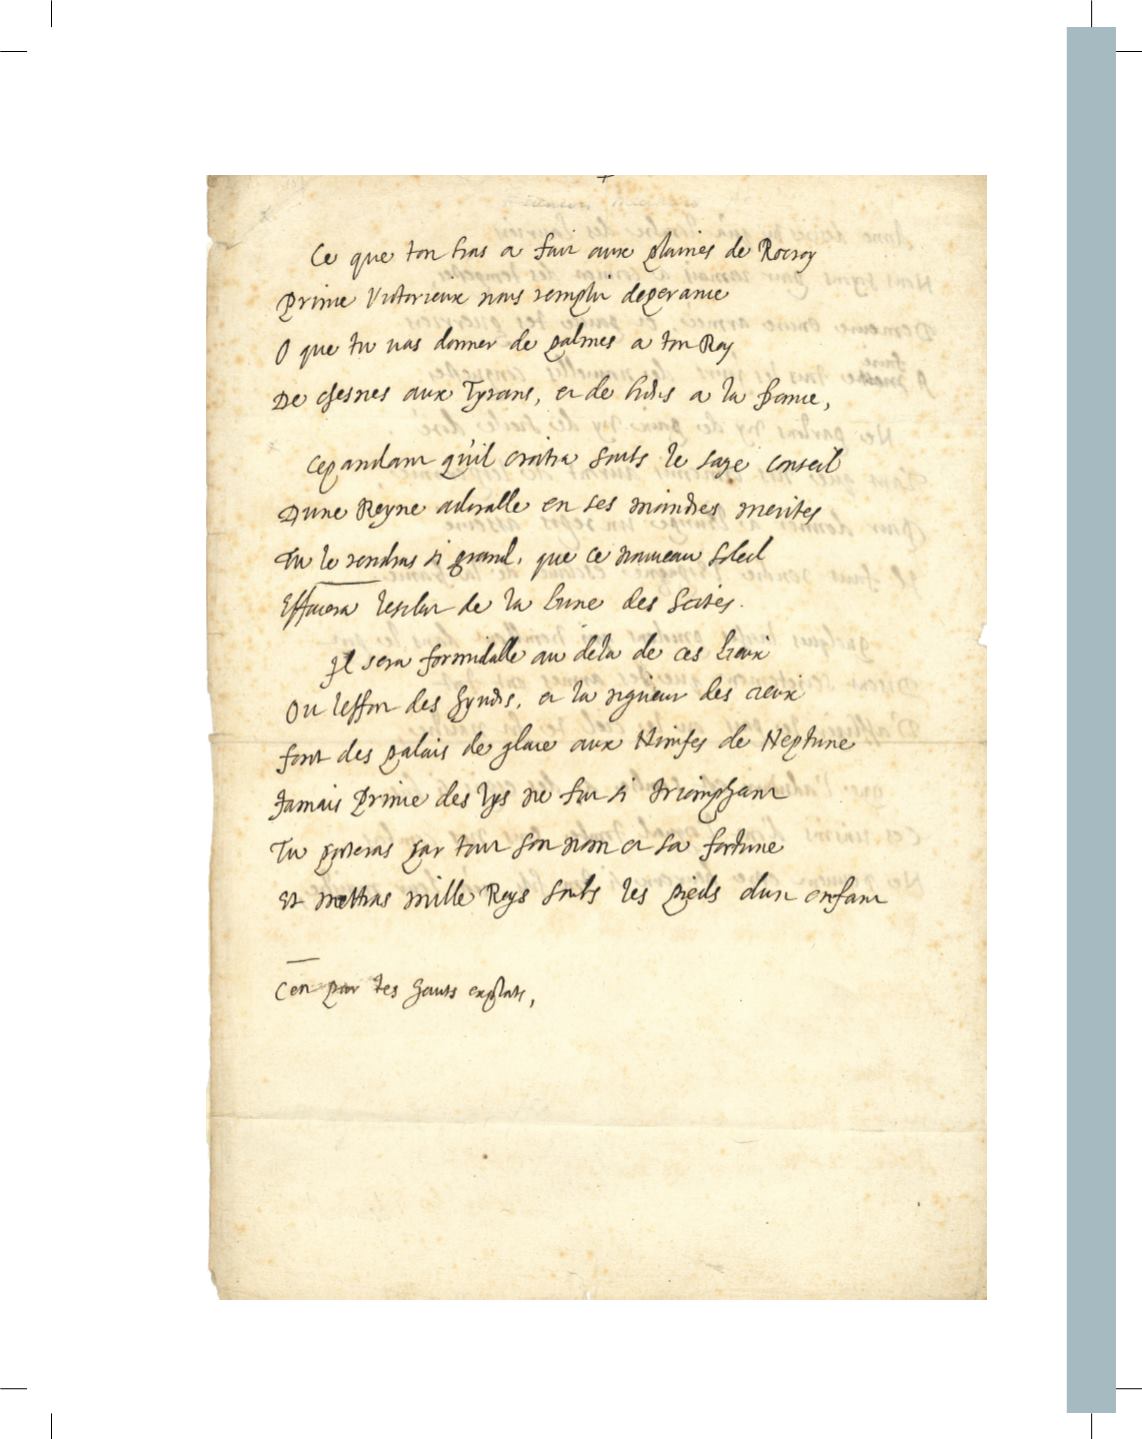 Ce que ton bras a fait aux plaines de Rocroy
Prince Victorieux nous remplit desperance
O que tu vas donner de palmes a ton Roy
De chesnes aux Tyrans, et de a la france,
Cependant quil croitra soubs le sage conseil
Dune Reyne adorable en ses moindres merites
Tu le rendras si grand, que ce nouveau soleil
Effacera lesclat de la Lune des Scites.
Jl sera formidable au dela de ces lieux
Ou leffort des hyvers, et la rigueur des cieux
font des palais de glace aux Nimfes de Neptune
Jamais Prince des lys ne fut si triomphant
Tu porteras par tout son nom et sa fortune
Et mettras mille Roys soubs les pieds dun enfant
Cest par tes hauts exploits,